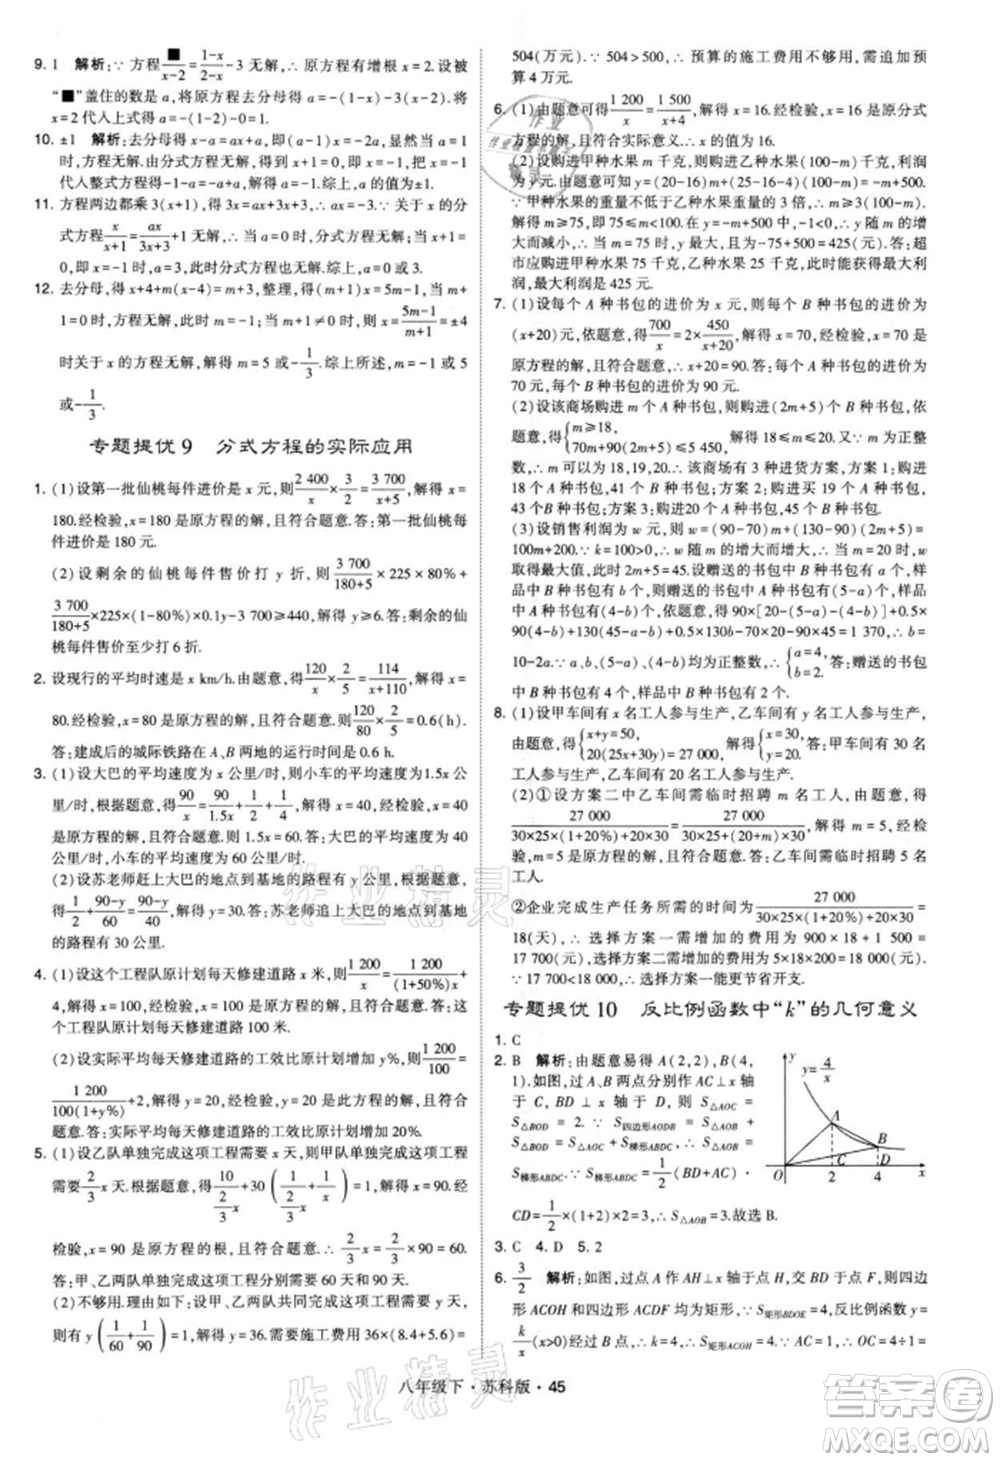 9. 1 解析:∵方程■/(x-2)=(1-x)/(2-x)-3无解,∴原方程有增根 x=2.设被
“■”盖住的数是 a,将原方程去分母得 a=-(1-x)-3(x-2),将
x=2 代入上式得 a=-(1-2)-0=1.
10. ±1 解析:去分母得 x-a=ax+a,整理得(a-1)x=-2a.当 a-1
=0,即 a=1时,方程无解.由分式方程无解,得到 x=-1.把 x=-1
代入整式方程得-a+1=-2a,解得 a=-1.综上,a 的值为±1.
11. 方程两边都乘 3(x+1),得 3x=ax+3x+3,∴ax=-3.∵关于 x 的分
式方程x/(x+1)=ax/(3x+3)+1无解,∴当 a=0时,整式方程无解.当 x+1
=0时,x=-1,此时-a=-3,解得 a=3.综上可得 a=0 或 3.
12. 去分母,得 x+4+m(x-4)=m+3,整理,得(m+1)x=5m-1.当 m+
1=0时,方程无解,此时 m=-1;当 m+1≠0时,x=(5m-1)/(m+1)=±4
时关于 x 的方程无解,解得 m=5 或-1/3.综上所述,m=-1 或 5
或-1/3.
专题提优 9 分式方程的实际应用
1. (1)设第一批仙桃每件进价是 x 元,则2 400/x×3/2=3 700/(x+5),解得 x=
180.经检验,x=180 是原方程的解,且符合题意.答:第一批仙桃每
件进价是 180 元.
(2)设剩余的仙桃每件售价打 y 折,则3 700/(180+5)×225×80%+
3 700/(180+5)×225×(1-80%)×0.1y-3 700≥440,解得 y≥6.答:剩余的仙
桃每件售价至少打 6 折.
2. 设现行的平均时速是 x km/h.由题意,得120/x×2/5=114/(x+110),解得 x=
80.经检验,x=80 是原方程的解,且符合题意.120/80×2/5=0.6(h).
答:建成后的城际铁路在 A、B 两地的运行时间是 0.6 h.
3. (1)设大巴的平均速度为 x 公里/时,则小车的平均速度为1.5x公
里/时,根据题意,得90/x=90/1.5x+1/2+1/4,解得 x=40.经检验,x=40
是原方程的解,且符合题意.1.5x=60.答:大巴的平均速度为 40 公
里/时,小车的平均速度为 60 公里/时.
(2)设苏老师赶上大巴的地点到基地的路程有 y 公里,根据题意,
得1/2+(90-y)/60=(90-y)/40,解得 y=30.答:苏老师追上大巴的地点到基地
的路程有 30 公里.
4. (1)设这个工程队原计划每天修建道路 x 米,则1 200/x=1 200/((1+50%)x)+
4,解得 x=100.经检验,x=100 是原方程的解,且符合题意.答:这
个工程队原计划每天修建道路 100 米.
(2)设实际平均每天修建道路的工效比原计划增加 y%,则1 200/100=
1 200/(100(1+y%))+2,解得 y=20.经检验,y=20 是原方程的解,且符合
题意.答:实际平均每天修建道路的工效比原计划增加 20%.
5. (1)设乙队单独完成这项工程需要 x 天,则甲队单独完成这项工程
需要2/3x天.根据题意,得10/(2/3x)+30(1/(2/3x)+1/x)=1,解得 x=90.经
检验,x=90 是原方程的根,且符合题意.∴2/3x=2/3×90=60(天).
答:甲、乙两队单独完成这项工程各需要 60 天和 90 天.
(2)不够用.理由如下:设甲、乙两队共同完成这项工程需要 y 天,
则y(1/60+1/90)=1,解得 y=36.需要施工费用 36×(8.4+5.6)=
504(万元).∵504>500,∴预算的施工费用不够用,需追加预
算 4 万元.
6. (1)由题意可得1 200/x=1 500/(x+4),解得 x=16.经检验,x=16 是原分式
方程的解,且符合实际意义.∴x 的值为 16.
(2)设购进甲种水果 m 千克,则购进乙种水果(100-m)千克,利润
为 y 元.由题意可知 y=(20-16)m+(25-16-4)(100-m)=-m+500.
∵甲种水果的重量不低于乙种水果重量的 3 倍,∴m≥3(100-m),
解得 m≥75,即 75≤m<100.在 y=-m+500 中,-1<0,则 y 随 m 的增
大而减小,∴当 m=75时,y 最大,且为-75+500=425(元).答:超
市应购进甲种水果 75 千克,乙种水果 25 千克才能获得最大利
润,最大利润是 425 元.
7. (1)设每个 A 种书包的进价为 x 元,则每个 B 种书包的进价为
(x+20)元,依题意,得700/x=2×450/(x+20),解得 x=70,经检验,x=70 是
原方程的解,且符合题意.∴x+20=90.答:每个 A 种书包的进价为
70 元,每个 B 种书包的进价为 90 元.
(2)设该商场购进 m 个 A 种书包,则购进(2m+5)个 B 种书包,依
题意,得{m≥18, 70m+90(2m+5)≤5 450,解得 18≤m≤20.又∵m 为正整数,
∴m 可以为 18,19,20,∴该商场有 3 种进货方案:方案 1:购进
18 个 A 种书包,41 个 B 种书包;方案 2:购进买 19 个 A 种书包,
43 个 B 种书包;方案 3:购进20 个 A 种书包,45 个 B 种书包.
(3)设销售利润为 w 元,则 w=(90-70)m+(130-90)(2m+5)=
100m+200.∵k=100>0,∴w 随 m 的增大而增大,∴当 m=20时,w
取得最大值,此时 2m+5=45.设赠送的书包中 B 种书包有 a 个,样
品中 B 种书包有 b 个,则赠送的书包中 A 种书包有(5-a)个,样品
中 A 种书包有(4-b)个,依题意,得 90×[20-(5-a)-(4-b)]+0.5×
90(4-b)+130(45-a-b)+0.5×130b-70×20-90×45=1 370,∴b=
10-2a.∵a、b、(5-a)、(4-b)均为正整数,∴{a=4, b=2.答:赠送的书包
中 B 种书包有 4个,样品中 B 种书包有 2 个.
8. (1)设甲车间有 x 名工人参与生产,乙车间有 y 名工人参与生产,
由题意,得{x+y=50, 20(25x+30y)=27 000,解得{x=30, y=20.答:甲车间有 30 名
工人参与生产,乙车间有 20 名工人参与生产.
(2)①设方案二中乙车间需临时招聘 m 名工人,由题意,得
27 000/(30×25×(1+20%)+20×30)=27 000/(30×25+(20+m)×30),解得 m=5,经检验,
m=5 是原方程的解,且符合题意.答:乙车间需临时招聘 5 名
工人.
②企业完成生产任务所需的时间为27 000/(30×25×(1+20%)+20×30)=
18(天),∴选择方案一需增加的费用为 900×18+1 500=
17 700(元),选择方案二需增加的费用为 5×18×200=18 000(元).
∵17 700<18 000,∴选择方案一能更节省开支.
专题提优 10 反比例函数中“k”的几何意义
1. C
2. B 解析:由题意易得 A(2,2),B(4,
1).如图,过 A、B 两点分别作 AC⊥x 轴
于 C, BD⊥x 轴于 D,则 S△AOC=
S△BOD=2. ∵S四边形AODB=
S△AOB+S△BOD=S△AOC+S梯形ABDC,
∴S梯形ABDC=S△AOB.∵S梯形ABDC=1/2(BD+AC)·
CD=1/2×(1+2)×2=3,∴S△AOB=3.故选 B.
y=4/x
y
A
B
O
C
D
2
4
x
3. C 4. D 5. 2
6. 3/2 解析:如图,过点 A 作 AH⊥x 轴于点 H,则四边
形 ACOH 和四边形 ACDF 均为矩形,∵S矩形BDOE=4,反比例函数 y=
k/x(x>0)经过 B 点,∴k=4,∴S矩形ACOH=4.∵AC=1,∴OC=4÷1=
八年级下·苏科版·45
作业精灵
答案圈
MXQE.COM